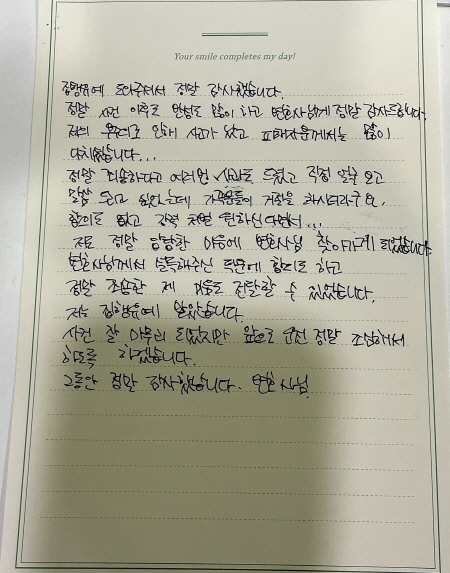 Your smile completes my day!
집행유예 도와주셔서 정말 감사했습니다.
정말 사건 이후로 반성도 많이 하고 변호사님께 정말 감사드립니다.
저의 부주의로 인해 사고가 났고 피해자분께서는 많이
다치셨습니다...
정말 죄송하다고 여러번 사과도 드렸고 직접 얼굴 보고
말씀 듣고 싶었는데 가족분들이 거절을 하시더라구요.
합의도 않고 강력 처벌 원하신다면서...
저도 정말 답답한 마음에 변호사님 찾아가게 되었습니다.
변호사님께서 설득해주신 덕분에 합의도 하고
정말 죄송한 제 마음도 전달할 수 있었습니다.
저는 집행유예 받았습니다.
사건 잘 마무리 되었지만 앞으로 운전 정말 조심해서
하도록 하겠습니다.
그동안 정말 감사했습니다. 변호사님